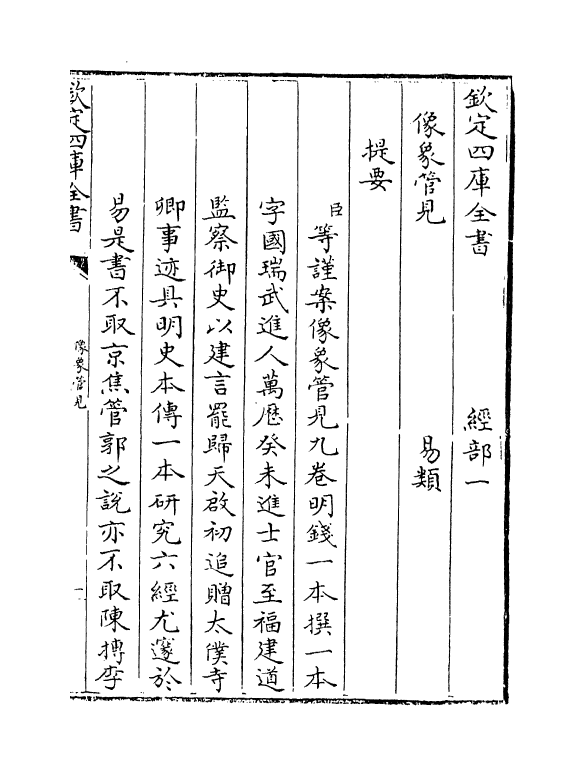 欽定四庫全書　經部一
像象管見　易類
提要
臣等謹案像象管見九卷明錢一本撰一本
字國瑞武進人萬歷癸未進士官至福建道
監察御史以建言罷歸天啟初追贈太僕寺
卿事迹具明史本傳一本研究六經尤邃於
易是書不取京焦管郭之說亦不取陳摶李
欽定四庫全書
像象管見
一